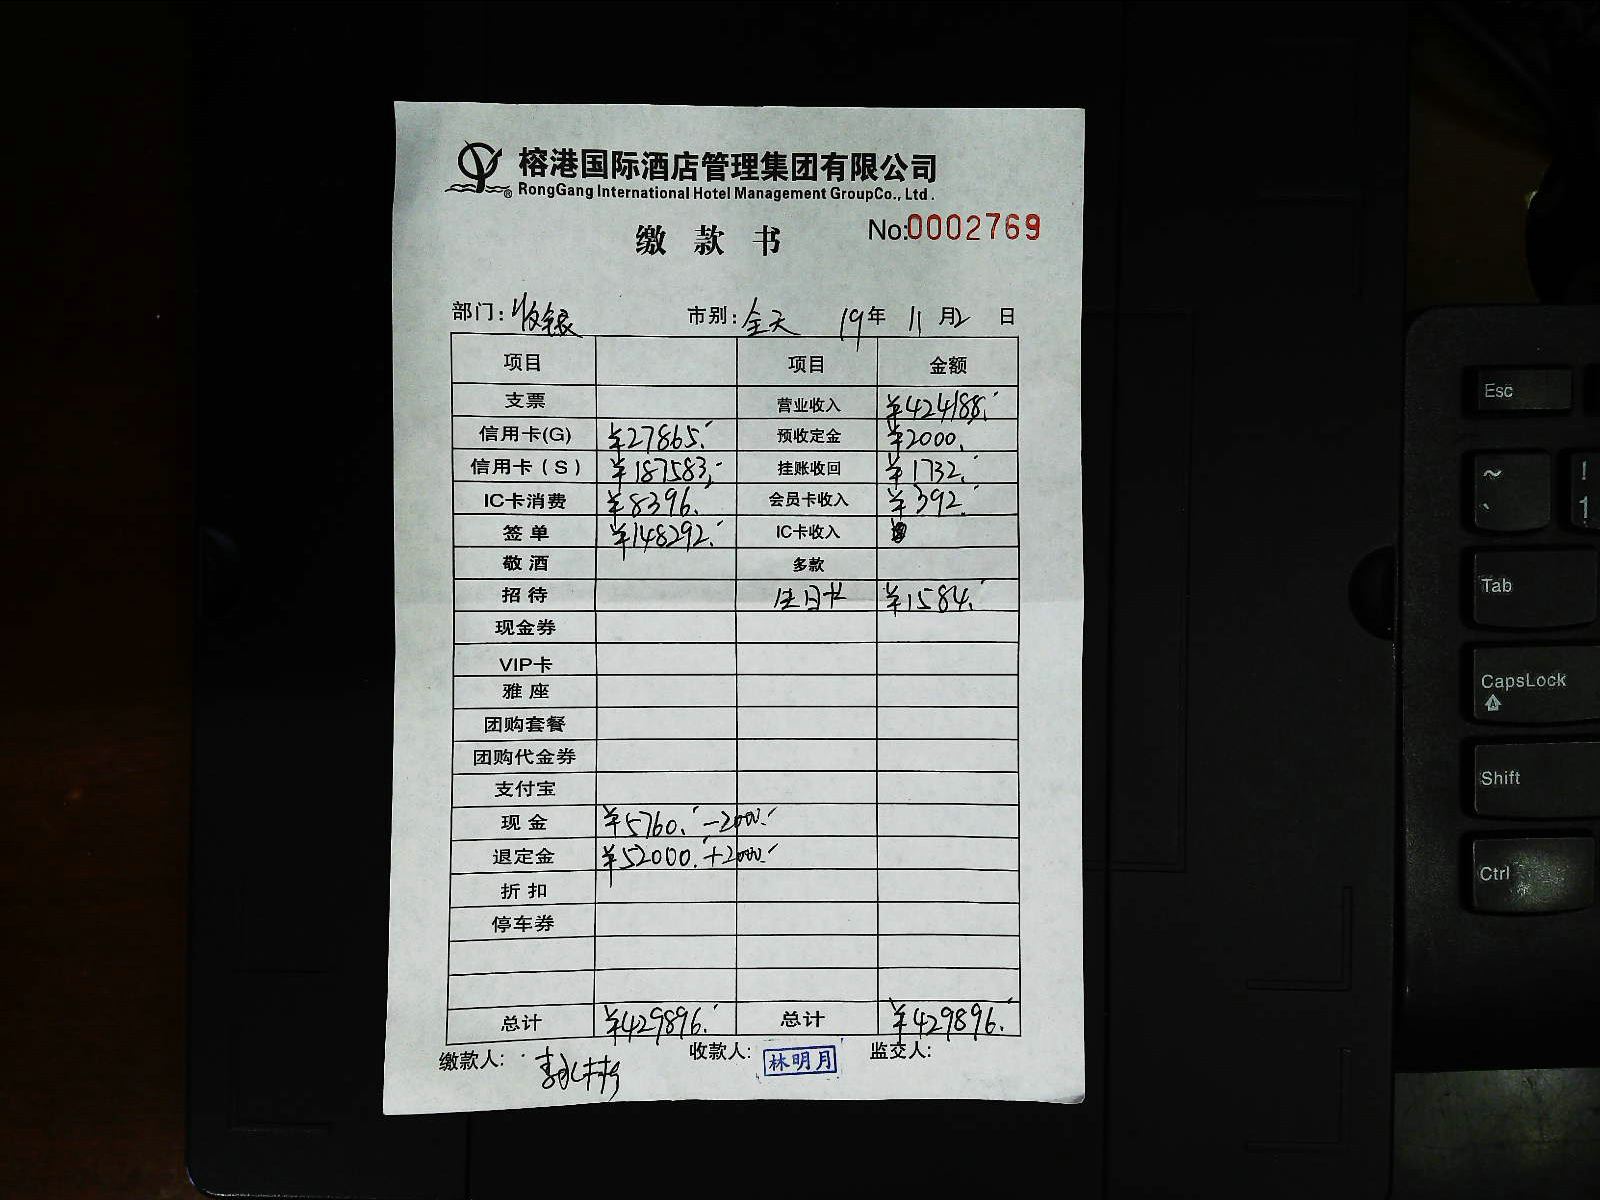 榕港国际酒店管理集团有限公司
RongGang International Hotel Management GroupCo., Ltd.
缴款书 No:0002769
部门: 收银 市别: 全天 19年 11月2日
项目 项目 金额
支票 营业收入 ¥424188.-
信用卡(G) ¥27865.- 预收定金 ¥2000.
信用卡(S) ¥187583.- 挂账收回 ¥1732.-
IC卡消费 ¥8396. 会员卡收入 ¥392.-
签单 ¥148292.- IC卡收入 ¥
敬酒 多款
招待 生日卡 ¥1584.-
现金券
VIP卡
雅座
团购套餐
团购代金券
支付宝
现金 ¥5760.- -2000.-
退定金 ¥52000.- +2000.-
折扣
停车券
总计 ¥429896.- 总计 ¥429896.-
缴款人: 收款人: 林明月 监交人:
Esc
~
`
!
1
Tab
CapsLock
Shift
Ctrl